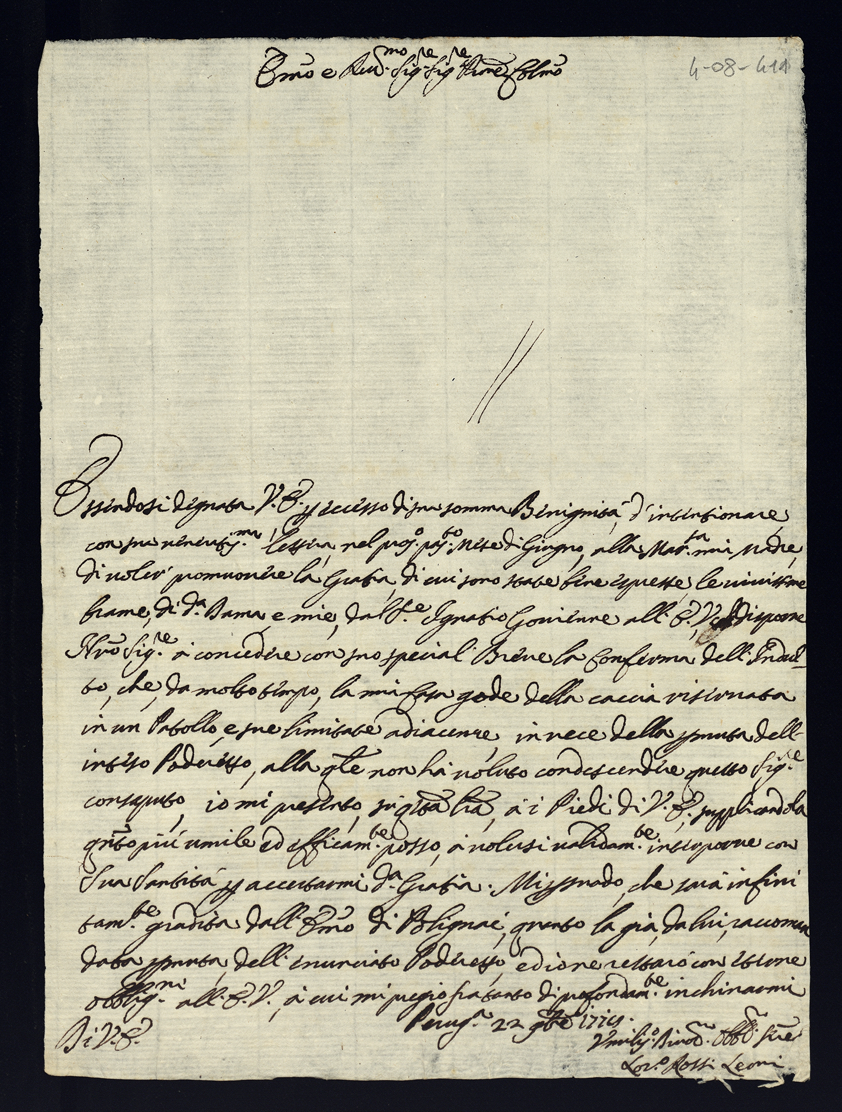 Emo e Rmo Sigre Sigre Pne Colmo
4-08-411
Essendosi degnata V. E. p eccesso di sua somma Benignità, d'intentionare
con sua lettera, nel pros. pas.to Mese di Giugno, alla Mar.sa mia Madre,
di voler promuovere la Gratia, di cui sono state bene espresse le vivissime
brame, di d.a Dama, e mie, dal Ignatio all' E. V. disporre
Nro Sig.re à concedere con suo special Breve la Conferma dell' Indul-
to, che, da molto tempo, la mia Casa gode della caccia riservata
in un Patollo, e sue limitate adiacenze, in vece della dell'
intero Poderetto, alla qle non hà voluto condescendere questo Sig.re
consaputo, io mi presento, à i Piedi di V. E., supplicandola
qnto più umile ed efficam.te posso, à volersi validam.te interporre con
Sua Santità p accertarmi d.a Gratia. Mi persuado, che sarà infini
tam.te gradita dall' Emo di Polignac, quanto la già, da lui, raccoman
data dell' enunciato Poderetto, ed io ne resterò con eterne
obblig.ni all' E. V., à cui mi pregio fra tanto di profondam.te inchinarmi
Di V. E.
Perug.a 22 9bre
Umiliss.o Divot.mo Obbl.mo Sre
Lor.o Rossi Leoni